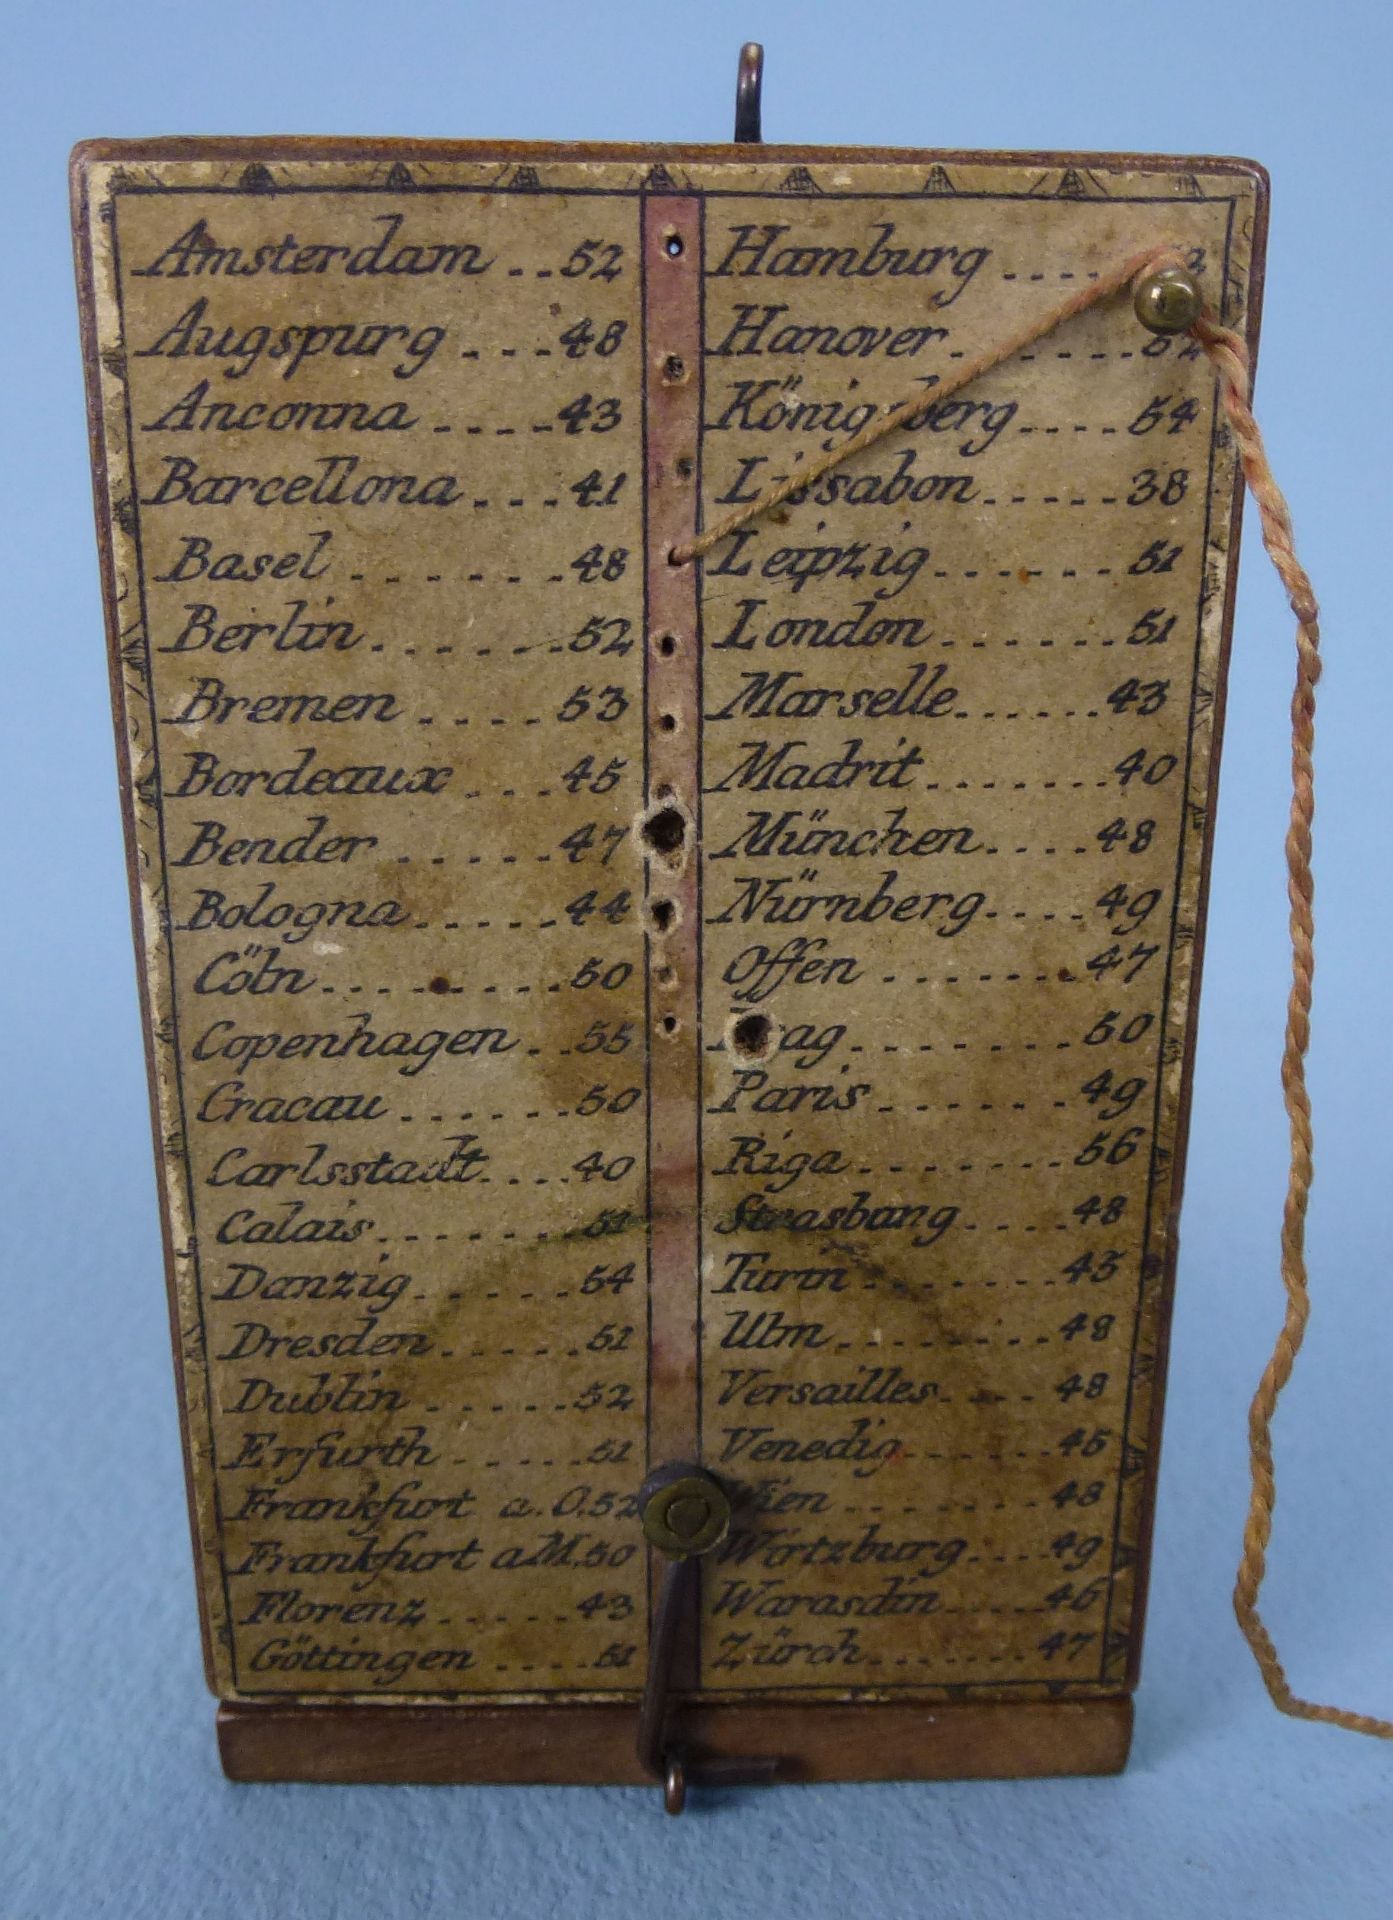 Amsterdam . . . 52
Augspurg . . . . 48
Anconna . . . . . 43
Barcellona . . . . 41
Basel . . . . . . . 48
Berlin . . . . . . . 52
Bremen . . . . 53
Bordeaux . . . . 45
Bender . . . . . . 47
Bologna . . . . . . 44
Cöln . . . . . . . . . 50
Copenhagen . . . 55
Cracau . . . . . . 50
Carlsstadt . . . . 40
Calais . . . . . . . 51
Danzig . . . . . . 54
Dresden . . . . . . 51
Dublin . . . . . . 52
Erfurth . . . . . . 51
Frankfurt a. O. 52
Frankfurt a M. 50
Florenz . . . . . . 43
Göttingen . . . . 51
Hamburg . . . .
Hanover . . . . . . . 52
Königsberg . . . . 54
Lissabon . . . . . 38
Leipzig . . . . . . 51
London . . . . . . . 51
Marselle . . . . . . 43
Madrit . . . . . . . 40
München . . . . 48
Nürnberg . . . . 49
Offen . . . . . . . 47
ag . . . . . . . . 50
Paris . . . . . . . 49
Riga . . . . . . . 56
Strasburg . . . . 48
Turin . . . . . . . 45
Ulm . . . . . . . . 48
Versailles . . . . 48
Venedig . . . . . . 45
Wien . . . . . . . . 48
Wörtzburg . . . . 49
Warasdin . . . . . 46
Zürch . . . . . . . 47